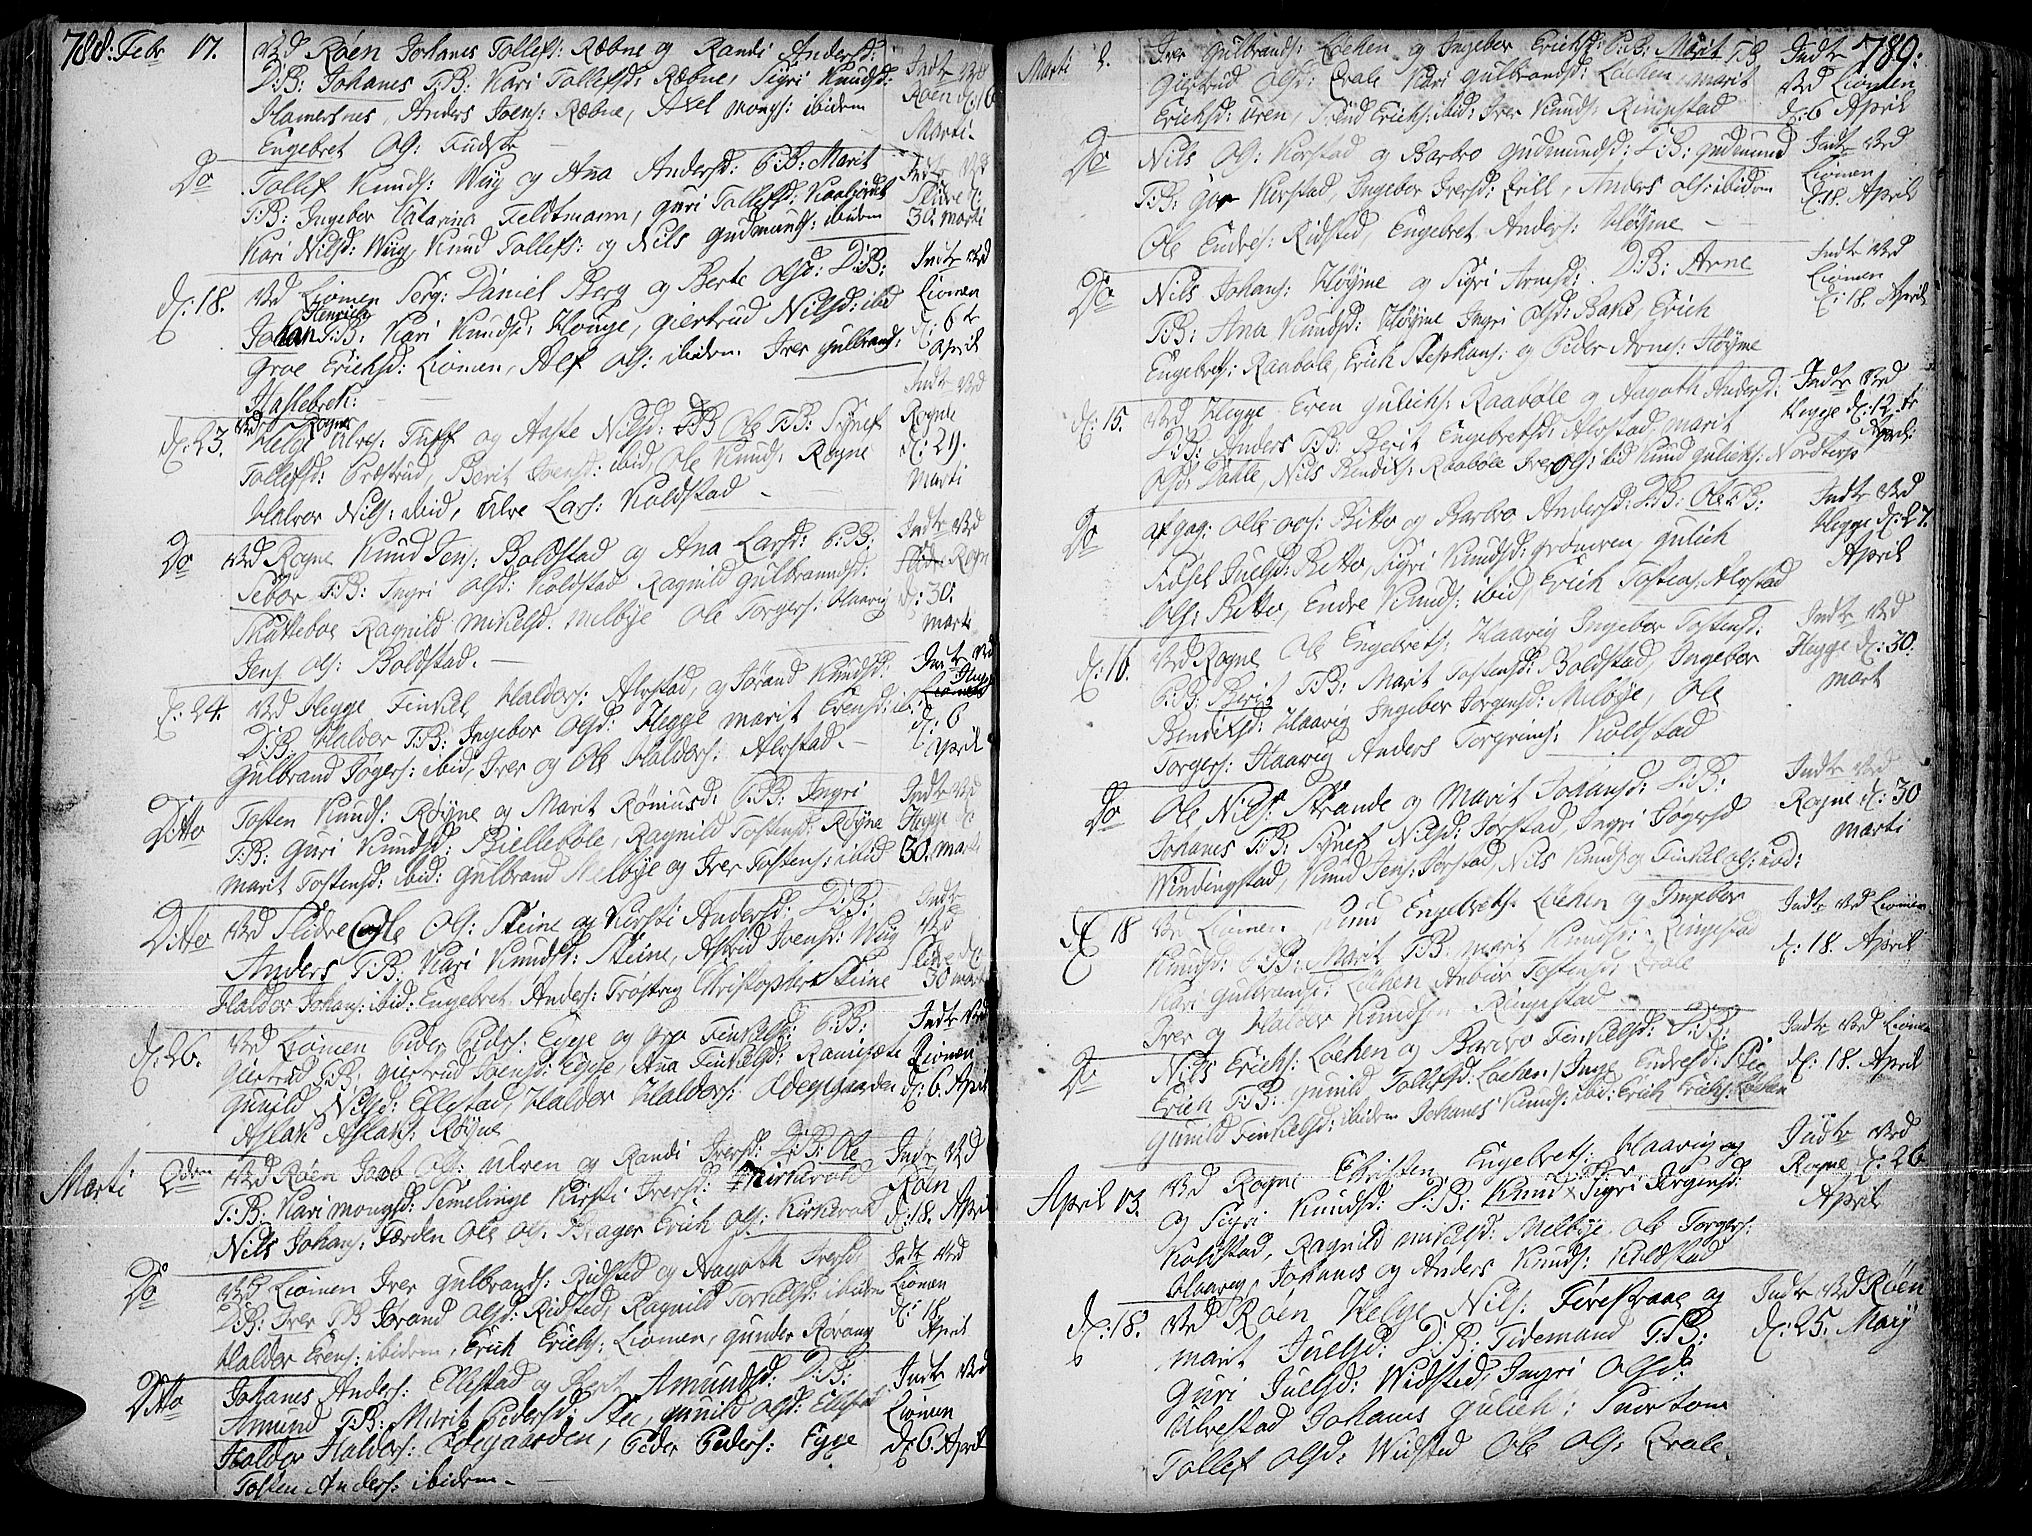 788: Febr 17. Ved Röen Johanes Tollefs: Ræbne og Randi Andersd:
D:B: Johanes T:B: Kari Tollefsd: Ræbne, Sigri Knudsd:
Hamersnes, Anders Joens: Ræbne, Axel mons: ibidem
Engebret Ols:
Indtr Ved
Röen d: 16
Marti
Do Tollef Knuds: Wiig og Ana Andersd: P:B: Marit
T:B: Ingebor Catarina Feldtmann, guri Tollefsd:
Kari Nilsd: Wiig, Knud Tollefs: og Nils gudmunds: ibidem
Indtr Ved
Slidre d:
30. marti
d: 18. Ved Liomen Serg: Daniel Berg og Berte Olsd: D:B:
Johan Henrich T:B: Kari Knudsd: Houge, giertrud Nilsd: ibid
Groe Erichsd: Liomen, Alf Ols: ibidem Iver gulbrands:
Hassebrek:
Indtr Ved
Liomen
d: 6te
April
d: 23. Ved Rogne
Helge Ulves: Tuff og Aaste Nilsd: D:B Ole T:B: Synef
Tollefsd: Præstrud, Berit Joensd: ibid, Ole Knuds: Rogne
Halvor Nils: ibid, Ulve Lars: Koldstad
Indtr Ved
Rogne
d: 29.
Marti
Do Ved Rogne Knud Jens: Boldstad og Ana Larsd: P:B:
Sebor T:B: Ingri Olsd: Koldstad Ragnild gulbrandsd:
Skatteboe Ragnild mikelsd: Melbye Ole Torgers: Haavig
Jens Ols: Boldstad.
Indtr Ved
Rogne
d: 30.
Marti
d: 24. Ved Hegge Finkel Haldors: Alvstad, og Jørand Knudsd:
D:B: Haldor T:B: Ingebor Olsd: Hegge marit Evensd: ib:
Gulbrand Togers: ibid, Iver og Ole Haldors: Alvstad.
Indtr Ved
Hegge
d: 6
April
Ditto Tosten Knuds: Røyne og Marit Rømusd: P:B: Ingri
T:B: Guri Knudsd: Biellebøle, Ragnild Tostensd: Røyne
marit Tostensd: ibid: Gulbrand Melbye og Iver Tostens: ibid
Indtr Ved
Hegge d:
30. marti
Ditto Ved Slidre Ole Ols: Steine og Kirsti Andersd: D:B:
Anders T:B: Kari Knudsd: Steine, Astrid Joensd: Wiig
Haldor Johans: ibid: Engebret Anders: Trøstrig Christopher Steine
Indtr
Ved
Slidre d:
30 marti
d: 26. Ved Liomen Peder Peders: Egge og gro Finkelsd: P:B:
Giertrud T:B: giertrud Joensd: Egge, Ana Finkelsd:
Gunild Nilsd: Ellestad, Haldor Haldors: Ødegaarden
Aslak Aslaks: Røyne
Indtr Ved
Liomen
d: 6. April
Marti 2den Ved Röen Jacob Ols: Ulven og Randi Iversd: D:B: Ole
T:B: Kari monsd: Semelinge Kirsti Iversd: Kirkevold
Nils Johans: Færden Ole Ols: Brager Erich Ols: Kirkevold
Indtr Ved
Röen
d: 18. April
Do Ved Liomen Iver gulbrands: Ridsted og Aagoth Iversd:
D:B: Iver T:B Jørand Olsd: Ridsted, Ragnild Torkelsd: ibidem
Haldor Evens: ibidem, Erich Erichs: Liomen, gunder Rørang
Indtr Ved
Liomen
d: 18
April
Ditto Johanes Anders: Ellestad og Berit Amundsd: D:B:
Amund T:B: Marit Pedersd: Stee, gunild Olsd: Ellestad
Haldor Haldors: Ødegaarden, Peder Peders: Egge
Tosten Anders: ibidem
Indtr Ved
Liomen
d: 6. April
789:
Marti 2. Iver Gulbrands: Löchen og Ingebor Erichsd: P:B: Marit T:B
giertrud Olsd: Qvale Kari gulbrandsd: Löchen, Marit
Erichsd: uren, Svend Erichs: ibid: Iver Knuds: Ringestad
Indtr
Ved Liomen
d: 6 April
Do Nils Ols: Kirstad og Barbro gudmundsd: D:B: gudmund
T:B: Kirstad, Ingebor Iversd: Anders ols: ibidem
Ole Endres: Ridsted, Engebret Anders: Høyme
Indtr Ved
Liomen
d: 18. April
Do Nils Johans: Høyme og Sigri Arnesd: D:B: Arne
T:B: Ana Knudsd: Høyme Ingri Olsd: Bake, Erich
Engebrets: Raabøle, Erich Stephans: og Peder Arnes: Høyme
Indtr Ved
Liomen
d: 18. April
d: 15. Ved Hegge Even gulichs: Raabøle og Aagoth Andersd:
D:B: Anders T:B: Berit Engebretsd: Alvstad, marit
Olsd: Dahle, Nils Bendichs: Raabøle Iver Ols: ibid Knud gulichs: Nordtorp
Indtr Ved
Hegge d: 12te
April:
Do af gag: Olle ols: Bitto og Barbro Andersd: D:B: Ole T:B:
Sidsel Juelsd: Bitto, Sigri Knudsd: grönoven, gulich
Ols: Bitto, Endre Knuds: ibid, Erich Tostens: Alvstad
Indtr Ved
Hegge d: 27.
April
d: 16. Ved Rogne Ole Engebrets: Haavig Ingebor Tostensd:
P:B: Berit T:B: Marit Tostensd: Boldstad, Ingebor
Bendiksd: Haavig Ingebor Jørgensd: Melbye, Ole
Torgers: Haavig Anders Torgrims: Koldstad
Indtr Ved
Hegge d: 30.
mart
Do Ole Nils: Strande og Marit Johansd: D:B:
Johanes T:B: Synef Nilsd: Jorstad, Ingri Jøgersd
Windingstad, Knud Jens: Jorstad, Nils Knuds: og Finkel ols: ibd:
Indtr Ved
Rogne d: 30
marti
d: 18 Ved Liomen Knud Engebrets: Löchen og Ingebor
Knudsd: P:B: Marit T:B: Marit Knudsd: Ringestad
Kari Gulbrandsd: Löchen Anbiør Tostensd: Qvale
Iver og Haldor Knudsen Ringestad
Indtr Ved Liomen
d: 18. April
Do Nils Erichs: Löchen og Barbro Finkelsd: D:B:
Erich T:B: gunild Tollefsd: Löchen, Inge Endresd: Stee
Gunild Finkelsd: ibidem Johanes Knuds: ibid: Erich Erichs: Löchen
Indtr Ved Liomen
d: 18. April
April 13. Ved Rogne Christen Engebrets: Haavig og
og Sigri Knudsd: D:B: Knud T:B: Sigri Jørgensd:
Koldstad, Ragnild mikelsd: Melbye, Ole Torgers:
Haavig, Johanes og Anders Knuds: Koldstad
Indtr Ved
Rogne d: 26
April
d: 18. Ved Röen Helge Nils: Førestraae og
Marit Juelsd: D:B: Tidemand T:B:
Guri Juelsd: Widsted, Ingri Olsd:
Ulvestad Johanes Gulich: Suortom
Tollef Olsd: Widsted Ole Ols: Qvale
Indtr Ved Röen
d: 25. Maij